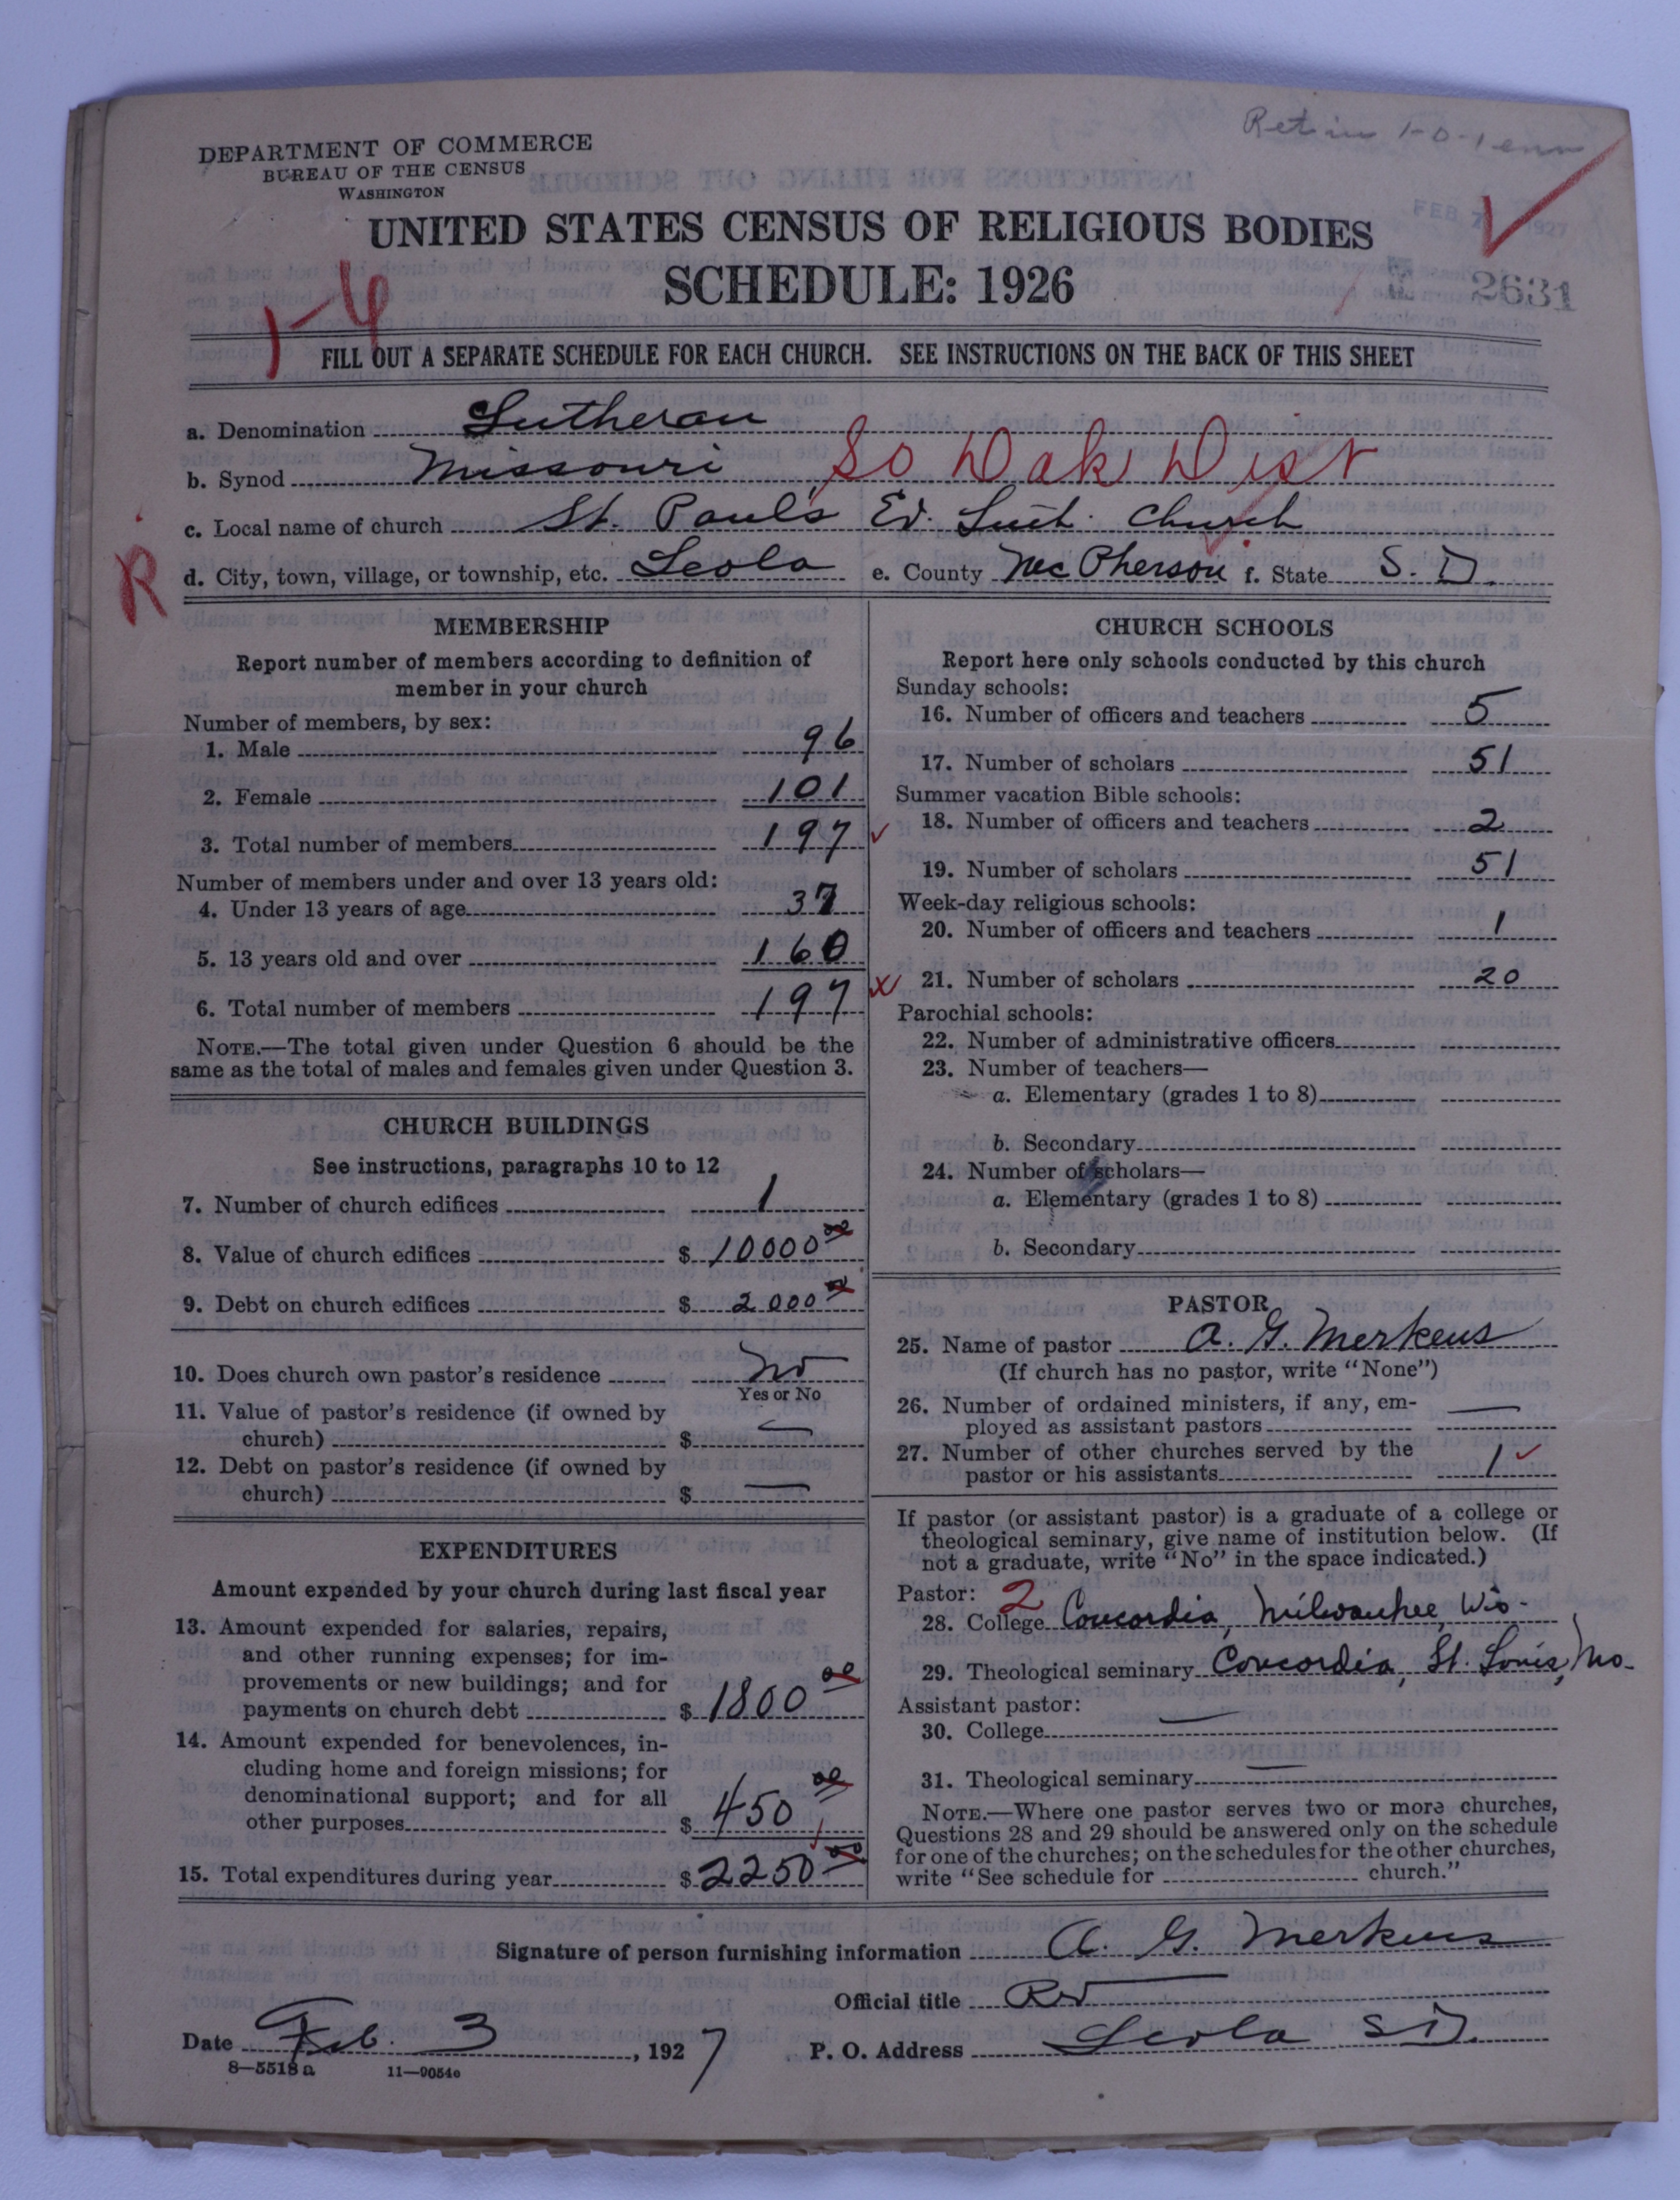 DEPARTMENT OF COMMERCE
BUREAU OF THE CENSUS
WASHINGTON
UNITED STATES CENSUS OF RELIGIOUS BODIES
FEB 1927
SCHEDULE: 1926
2631
1-4
FILL OUT A SEPARATE SCHEDULE FOR EACH CHURCH. SEE INSTRUCTIONS ON THE BACK OF THIS SHEET
a. Denomination Lutheran
b. Synod Missouri So Dak Dist
c. Local name of church St. Paul's Ev. Luth. Church
R
d. City, town, village, or township, etc. Leola e. County McPherson f. State S. D.
MEMBERSHIP
Report number of members according to definition of
member in your church
Number of members, by sex:
1. Male 96
2. Female 101
3. Total number of members 197
Number of members under and over 13 years old:
4. Under 13 years of age 37
5. 13 years old and over 160
6. Total number of members 197
NOTE.—The total given under Question 6 should be the
same as the total of males and females given under Question 3.
CHURCH BUILDINGS
See instructions, paragraphs 10 to 12
7. Number of church edifices 1
8. Value of church edifices $ 10000 00
9. Debt on church edifices $ 2000 00
10. Does church own pastor's residence No
Yes or No
11. Value of pastor's residence (if owned by
church) $ —
12. Debt on pastor's residence (if owned by
church) $ —
EXPENDITURES
Amount expended by your church during last fiscal year
13. Amount expended for salaries, repairs,
and other running expenses; for im-
provements or new buildings; and for
payments on church debt $ 1800 00
14. Amount expended for benevolences, in-
cluding home and foreign missions; for
denominational support; and for all
other purposes $ 450 00
15. Total expenditures during year $ 2250 00
CHURCH SCHOOLS
Report here only schools conducted by this church
Sunday schools:
16. Number of officers and teachers 5
17. Number of scholars 51
Summer vacation Bible schools:
18. Number of officers and teachers 2
19. Number of scholars 51
Week-day religious schools:
20. Number of officers and teachers 1
21. Number of scholars 20
Parochial schools:
22. Number of administrative officers
23. Number of teachers—
a. Elementary (grades 1 to 8)
b. Secondary
24. Number of scholars—
a. Elementary (grades 1 to 8)
b. Secondary
PASTOR
25. Name of pastor A. G. Merkens
(If church has no pastor, write "None")
26. Number of ordained ministers, if any, em-
ployed as assistant pastors —
27. Number of other churches served by the
pastor or his assistants 1
If pastor (or assistant pastor) is a graduate of a college or
theological seminary, give name of institution below. (If
not a graduate, write "No" in the space indicated.)
Pastor: 2
28. College Concordia, Milwaukee, Wis.
29. Theological seminary Concordia, St. Louis, Mo.
Assistant pastor:
30. College —
31. Theological seminary —
NOTE.—Where one pastor serves two or more churches,
Questions 28 and 29 should be answered only on the schedule
for one of the churches; on the schedules for the other churches,
write "See schedule for church."
Signature of person furnishing information A. G. Merkens
Official title Rev
Date Feb. 3, 1927 P. O. Address Leola S D.
8—5518 a 11—9054o